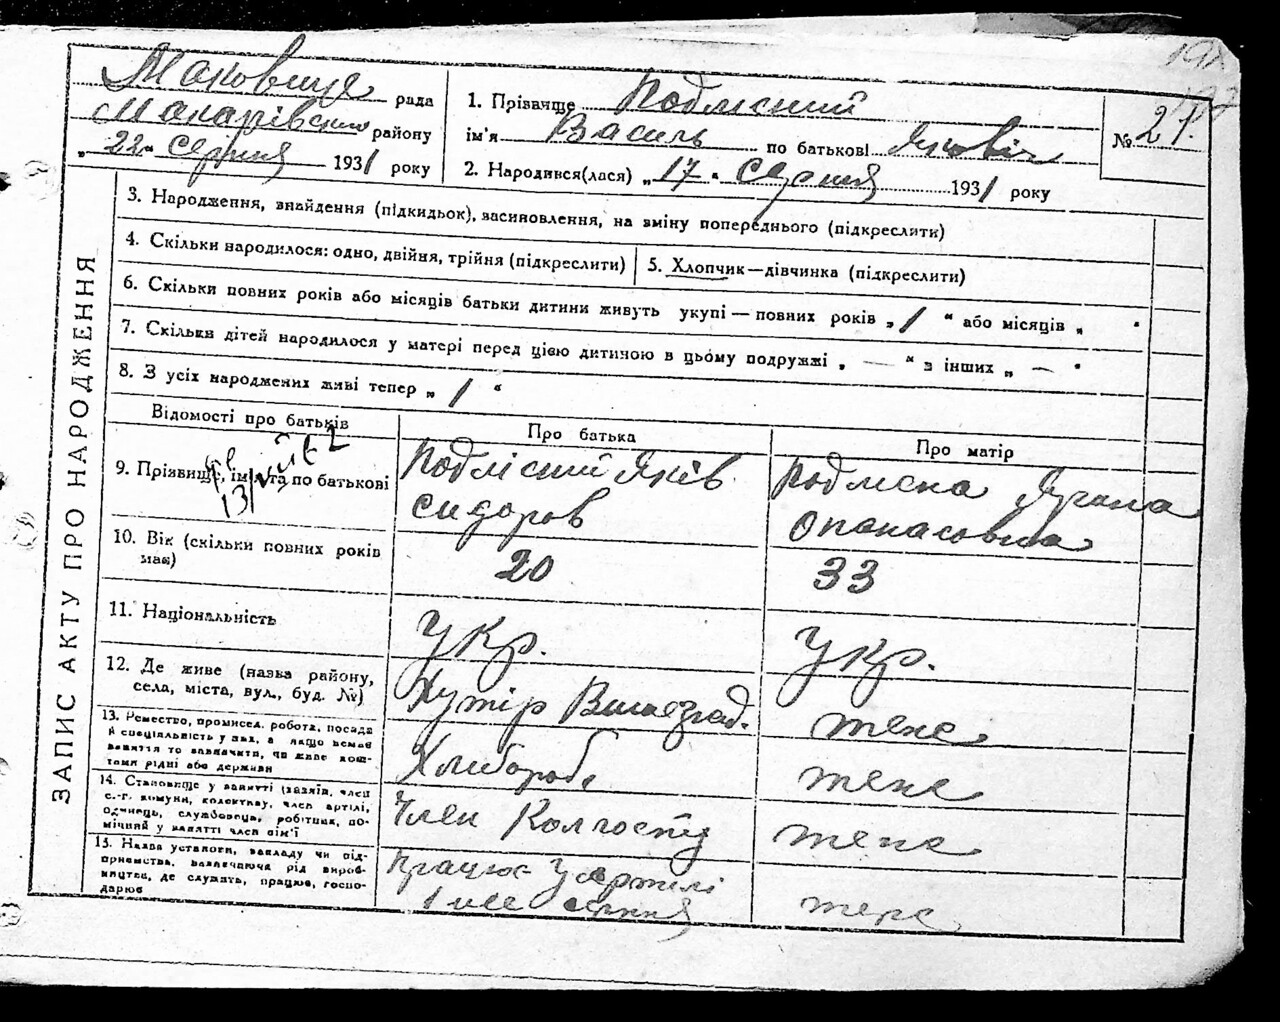 Маковище рада
Макарівського району
„22“ серпня 1931 року
1. Прізвище Подлісний
ім'я Василь по батькові Якович
2. Народився(лася) „17“ серпня 1931 року
№ 21
3. Народження, знайдення (підкидьок), засиновлення, на зміну попереднього (підкреслити)
4. Скільки народилося: одно, двійня, трійня (підкреслити)
5. Хлопчик—дівчинка (підкреслити)
6. Скільки повних років або місяців батьки дитини живуть укупі — повних років „1“ або місяців „ “
7. Скільки дітей народилося у матері перед цією дитиною в цьому подружжі „—“ з інших „—“
8. З усіх народжених живі тепер „1“
ЗАПИС АКТУ ПРО НАРОДЖЕННЯ
Відомості про батьків
Про батька
Про матір
9. Прізвище, ім'я та по батькові
Подлісний Яків
Сидоров
Подлісна
Опанасовна
10. Вік (скільки повних років
має)
20
33
11. Національність
Укр.
Укр.
12. Де живе (назва району,
села, міста, вул., буд. №)
Хутір Виноград.
теже
13. Ремество, промисел, робота, посада
й спеціальність у них, а якщо немає
заняття то зазначити, чи живе кош-
тами рідні або держави
Хлібороб
теже
14. Становище у занятті (хазяїн, член
с.-г. комуни, колективу, член артілі,
одинець, службовець, робітник, по-
мічний у занятті член сім'ї
Член Колгоспу
теже
15. Назва установи, закладу чи під-
приємства, зазначаючи рід вироб-
ництва, де служить, працює, госпо-
дарює
Працює у артілі
серпня
теже